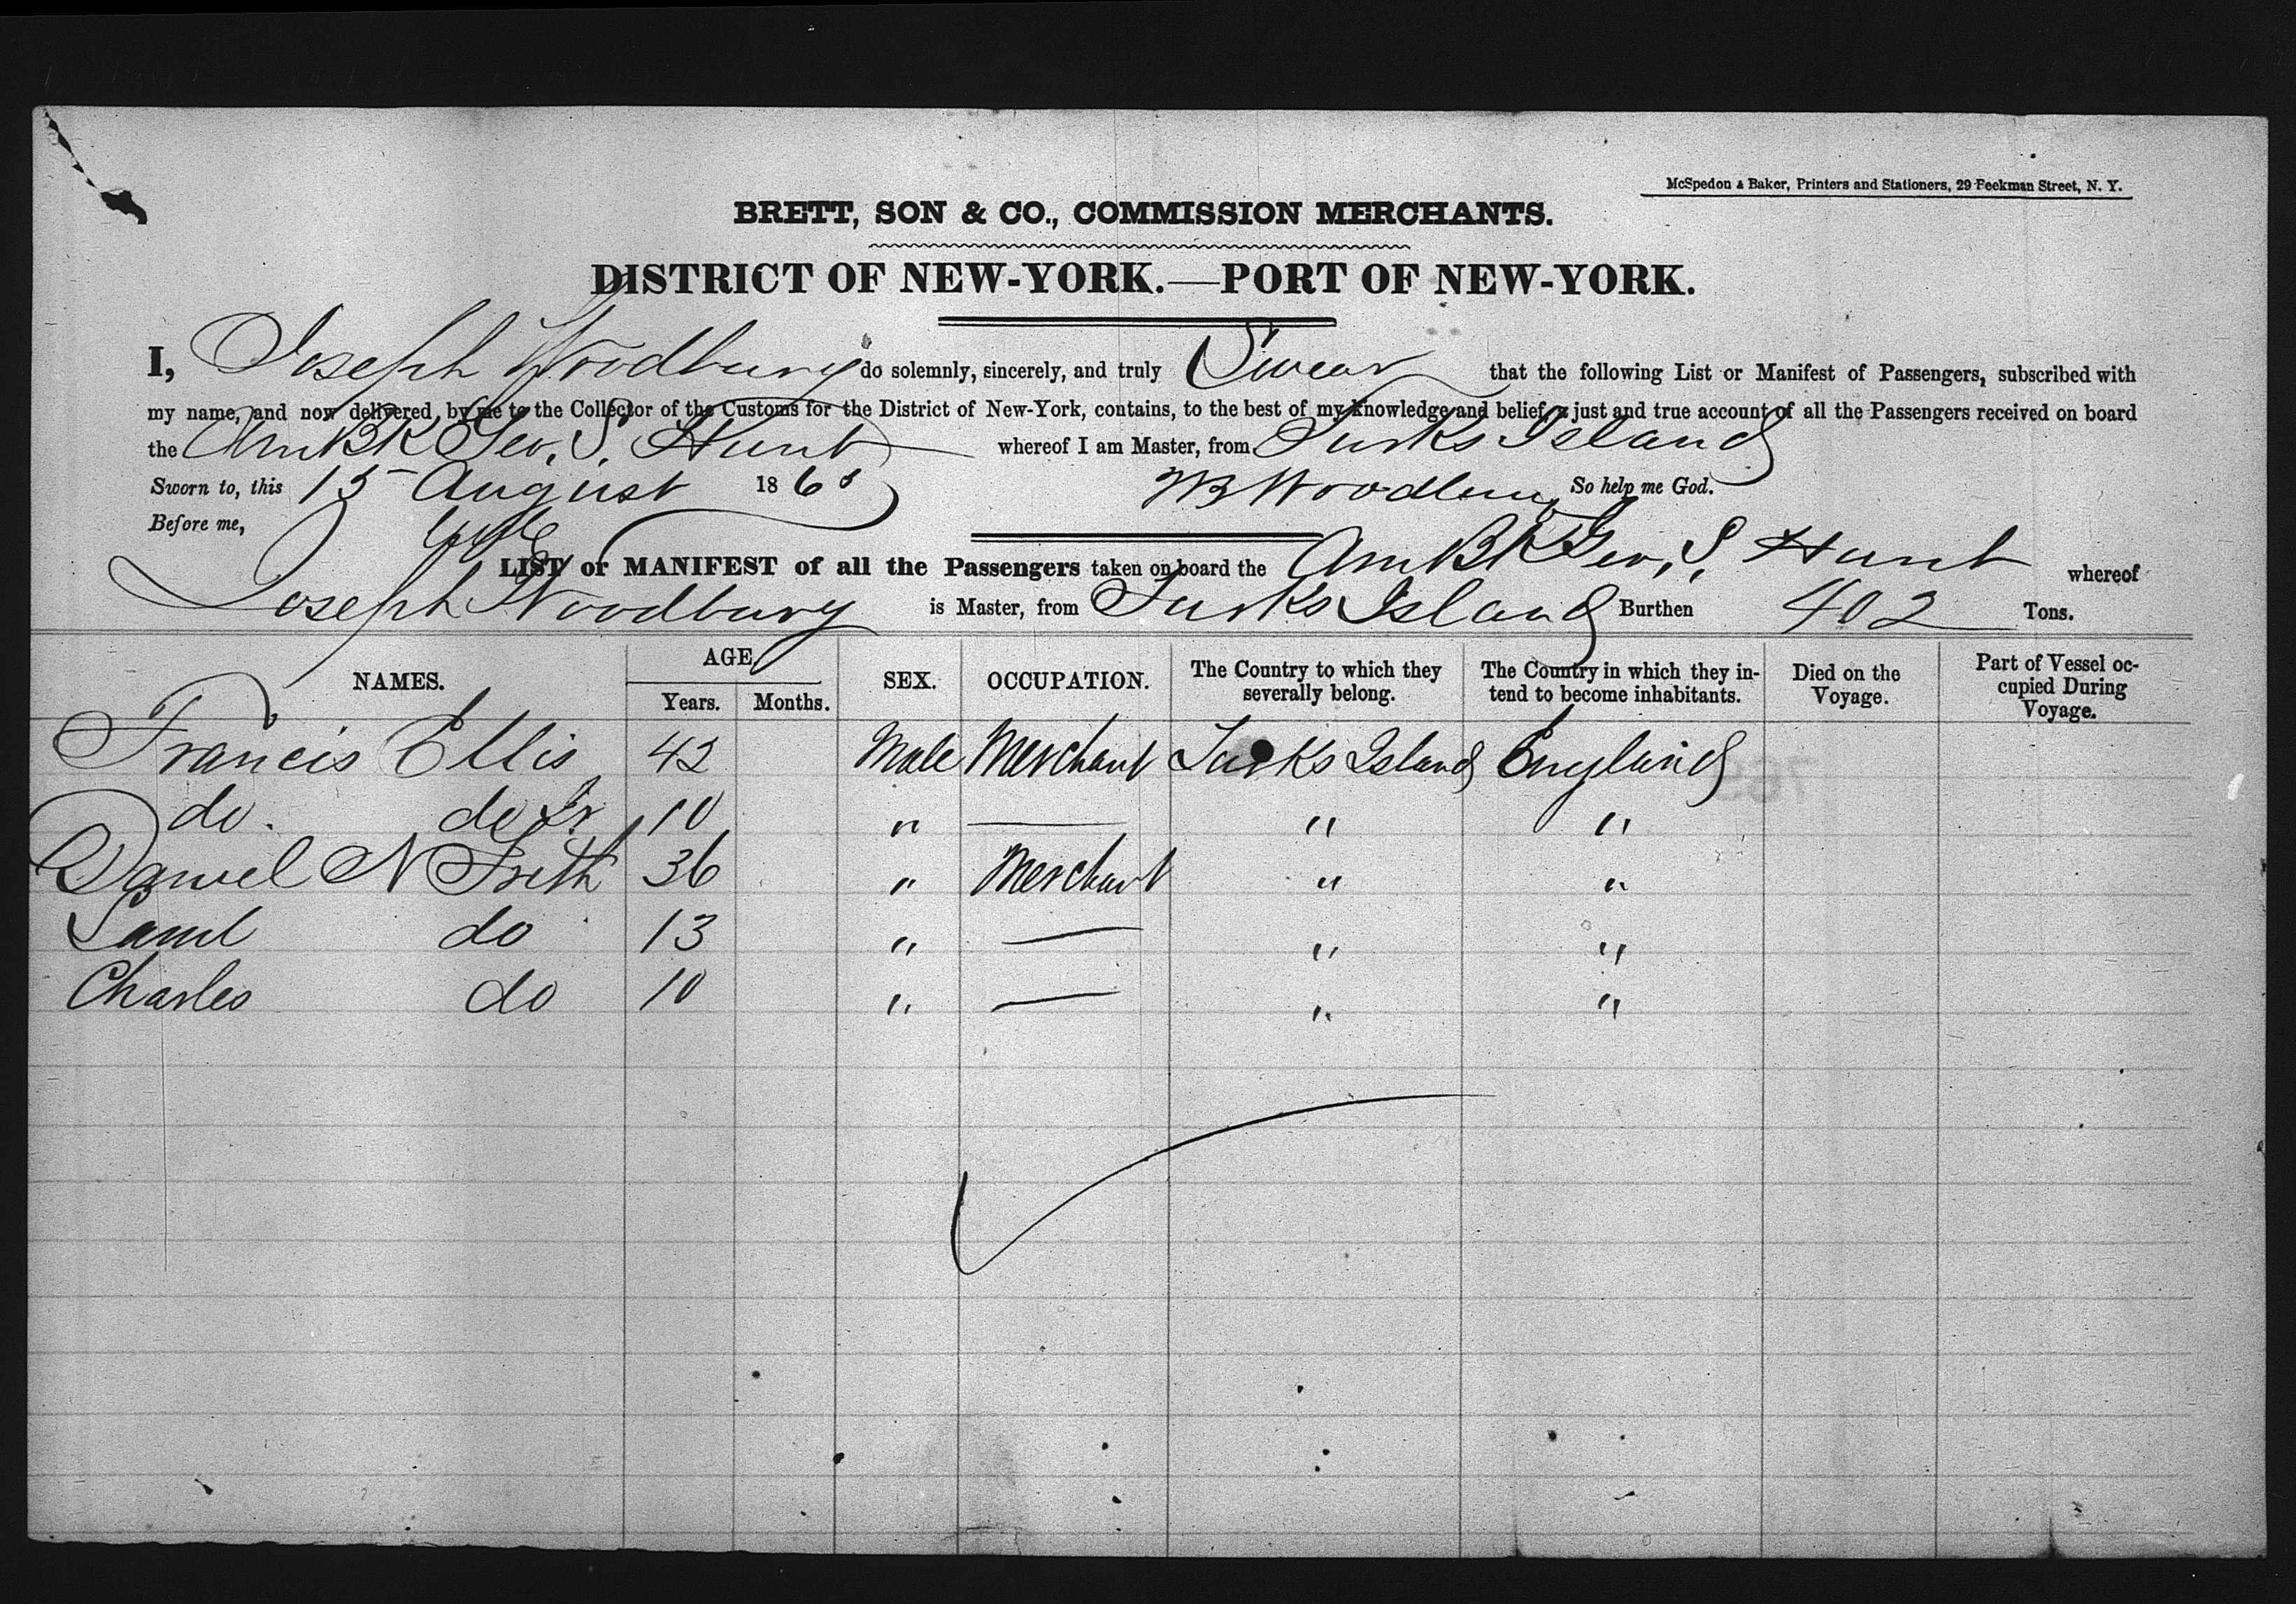 McSpedon & Baker, Printers and Stationers, 29 Beekman Street, N. Y.
BRETT, SON & CO., COMMISSION MERCHANTS.
DISTRICT OF NEW-YORK.—PORT OF NEW-YORK.
I, Joseph Woodbury do solemnly, sincerely, and truly Swear that the following List or Manifest of Passengers, subscribed with
my name, and now delivered by me to the Collector of the Customs for the District of New-York, contains, to the best of my knowledge and belief, a just and true account of all the Passengers received on board
the Am Bk Geo. S. Hunt whereof I am Master, from Turks Island
Sworn to, this 15 August 186 Woodbury So help me God.
Before me,
LIST or MANIFEST of all the Passengers taken on board the Am Bk Geo. S. Hunt whereof
Joseph Woodbury is Master, from Turks Island Burthen 402 Tons.
NAMES. AGE. Years. Months. SEX. OCCUPATION. The Country to which they severally belong. The Country in which they intend to become inhabitants. Died on the Voyage. Part of Vessel occupied During Voyage.
Francis Ellis 42 Male Merchant Turks Island England
do. do Jr 10 " — " "
Daniel N Frith 36 " Merchant " "
Saml do 13 " — " "
Charles do 10 " — " "